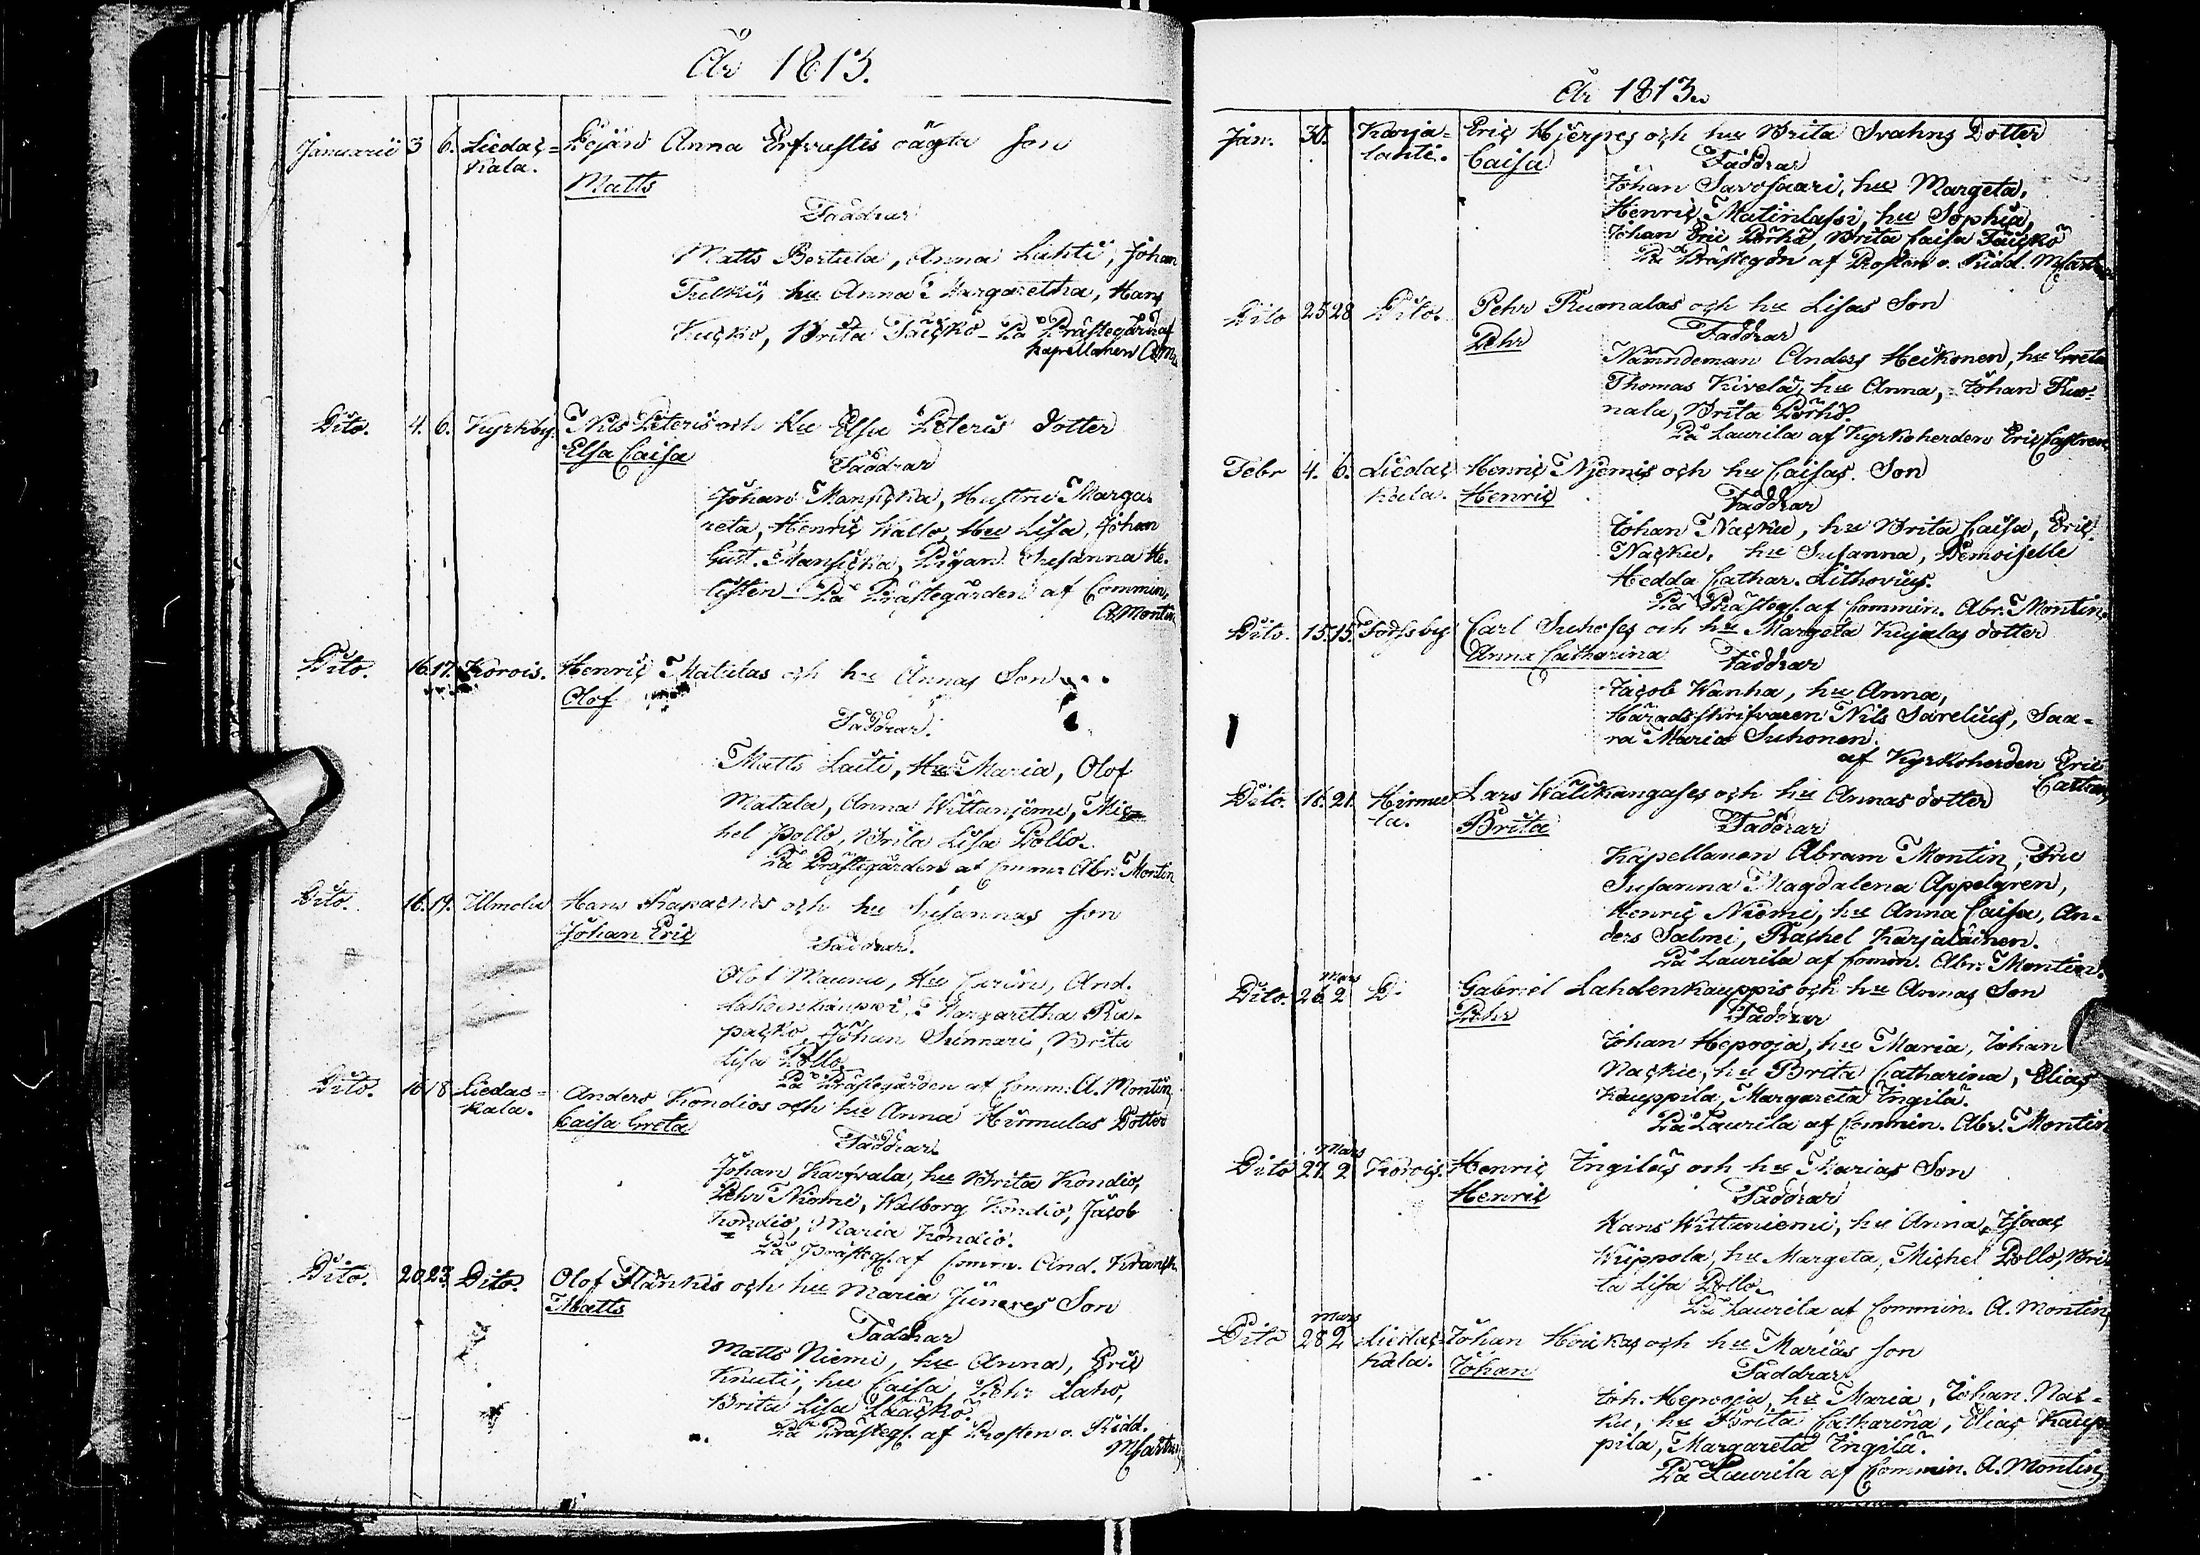 År 1813.
Januarii 3 6. Liedac= Pigan Anna Erfvastis oägta Son
kala. Matts
Faddrar
Matts Bertula, Anna Lahti, Johan
Tulki, hu Anna Margaretha, Hans
Kucko, Brita På Prästegård af
Kapellanen
Dito. 4. 6. Kyrkby. Nils Peteris och Hu Elsa Peteris dotter
Elsa Caisa
Faddrar
Johan Mansicka, Hustru Marga
reta, Henric Kallo, Hu Lisa, Johan
Gust. Mansicka, Pigan Susanna He-
listén På Prästegården af Commin,
A. Montin
Dito. 16. 17. Korois. Henric Matalas och hu Annas Son
Olof
Faddrar.
Matts Lauti, Hu Maria, Olof
Matala, Anna Wittaniemi, Mic
hel Pollo, Brita Lisa Pollo.
På Prästegården af Comm: Abr. Montin
Dito. 16. 19. Ilmola Hans Rapackos och hu Susannas Son
Johan Eric
Faddrar.
Olof Maunu, Hu Carin, And.
Lahdenkauppi, Margaretha Ra-
packo, Johan Sunnari, Brita
Lisa Pollo
På Prästegården af Comm: A. Montin
Dito. 16 18 Liedac= Anders Kondios och hu Anna Hirmulas Dotter
kala. Caisa Greta
Faddrar
Johan Karfvala, hu Brita Kondio,
Pehr Niemi, Walborg Kondio, Jacob
Kondio, Maria Kondio.
På Prästeg. af Comm. And.
Dito. 20 23. Dito. Olof Flänkis och hu Maria Junexes Son
Matts
Faddrar
Matts Niemi, hu Anna, Eric
Knuti, hu Caisa, Pehr Laho,
Brita Lisa
På Prästeg. af Prosten o. Ridd.
År 1813.
Jan. 30. Karja- Eric Hjerpes och hu Brita Svahns Dotter
lahti. Caisa
Faddrar
Johan Savosaari, hu Margeta,
Henric Matinlassi, hu Sophia,
Johan Eric Pörhö, Brita Caisa
På Prästegdn af Prosten o. Ridd.
Dito 25 28 Dito. Pehr Ruonalas och hu Lisas Son
Pehr
Faddrar
Nämndeman Anders Heikonen, hu Greta
Thomas Kivelä, hu Anna, Johan Ruo-
nala, Brita Pörhö.
På Laurila af Kyrkoherden Eric Castren
Febr 4. 6. Liedac Henric Njemis och hu Caisas Son
kala. Henric
Faddrar
Johan Nacku, hu Brita Caisa, Eric
Nacku, hu Susanna, Demoiselle
Hedda Cathar. Lithovius.
På Prästeg. af Commin. Abr. Montin
Dito. 15. 15. Torfsby Carl Suhoses och hu Margeta Kujalas dotter
Anna Catharina Faddrar
Jacob Wanha, hu Anna,
Häradsskrifvaren Nils Sarelius, Saa-
ra Maria Suhonen.
af Kyrkoherden Eric
Castren
Dito. 16. 21. Hirmu Lars Walckangases och hu Annas dotter
la. Brita
Faddrar
Kapellanen Abram Montin, Fru
Susanna Magdalena Appelgren,
Henric Niemi, hu Anna Caisa, An-
ders Salmi, Rachel Karjalainen.
På Laurila af Comm. Abr. Montin.
Mars
Dito. 26. 2 D. Gabriel Lahdenkauppis och hu Annas Son
Pehr
Faddrar
Johan Heproja, hu Maria, Johan
Nackie, hu Brita Catharina, Elias
Kauppila, Margareta Ingilä.
På Laurila af Commin. Abr. Montin
Mars
Dito 27. 2 Korois. Henric Ingiläs och hu Marias Son
Henric
Faddrar
Hans Wittaniemi, hu Anna, Isaac
Krippola, hu Margeta, Michel Pollo, Bri
ta Lisa Pollo.
På Laurila af Commin. A. Montin
Mars
Dito 28 2 Liedac Johan Houkas och hu Marias Son
kala. Johan
Faddrar
Joh. Heproja, hu Maria, Johan Nac-
ku, hu Brita Catharina, Elias Kaup
pila, Margareta Ingilä.
På Laurila af Commin. A. Montin